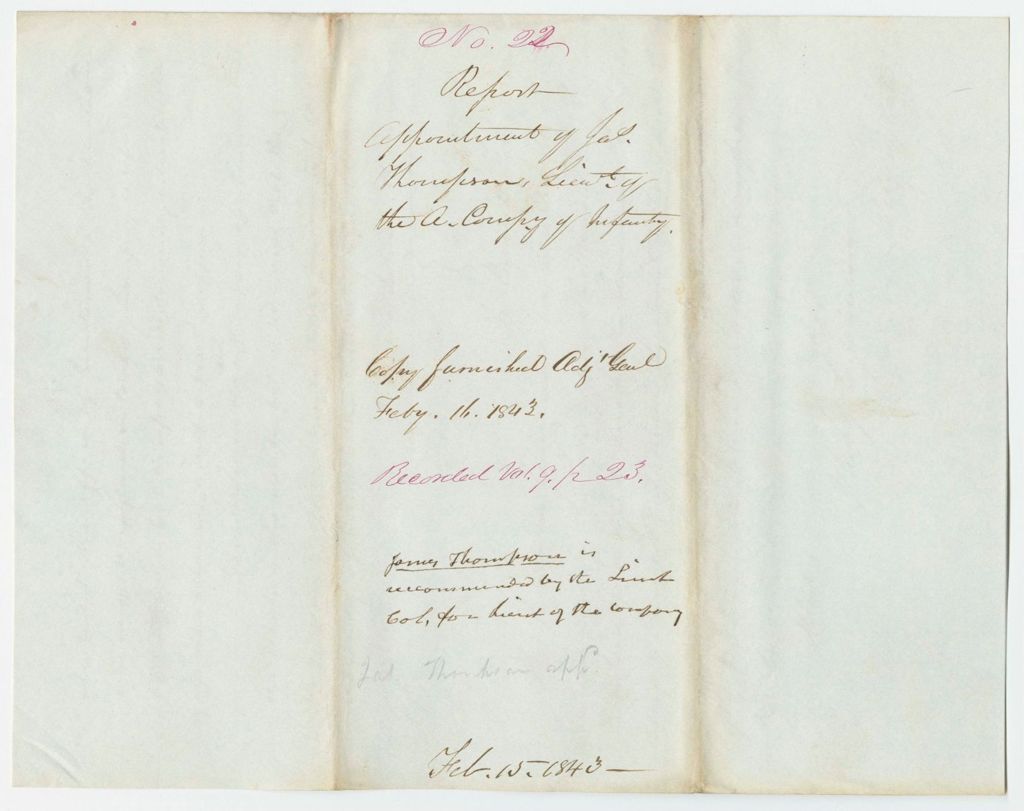 No. 22
Report
Appointment of Jas.
Thompson, Lieut. of
the A. Compy of Infantry.
Copy furnished Adjt Genl
Feby. 16. 1843.
Recorded Vol. 9. p 23.
James Thompson is
recommended by the Lieut
Col, for Lieut of the company
Jas Thompson appt.
Feb. 15. 1843